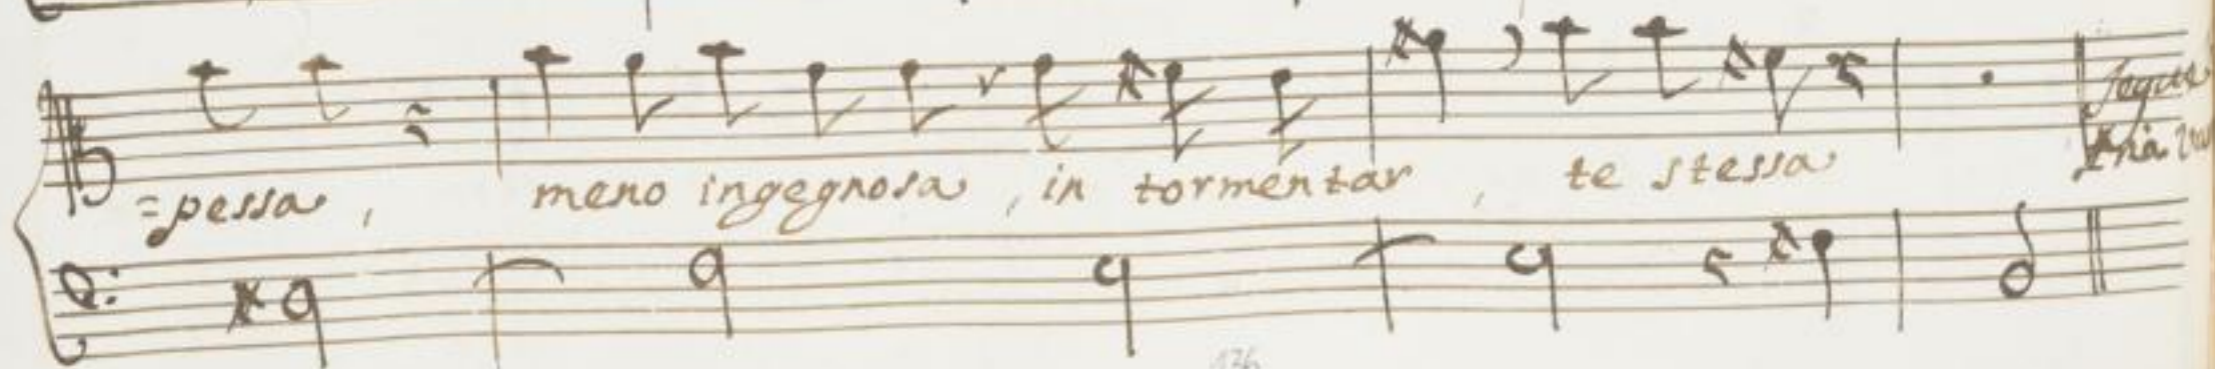 =pessa, meno ingegnosa, in tormentar, te stessa
Segue
136